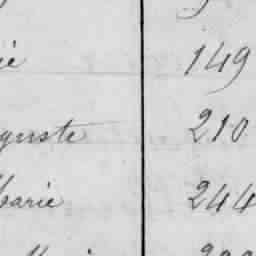 ié 149
guste 210
Marie 244